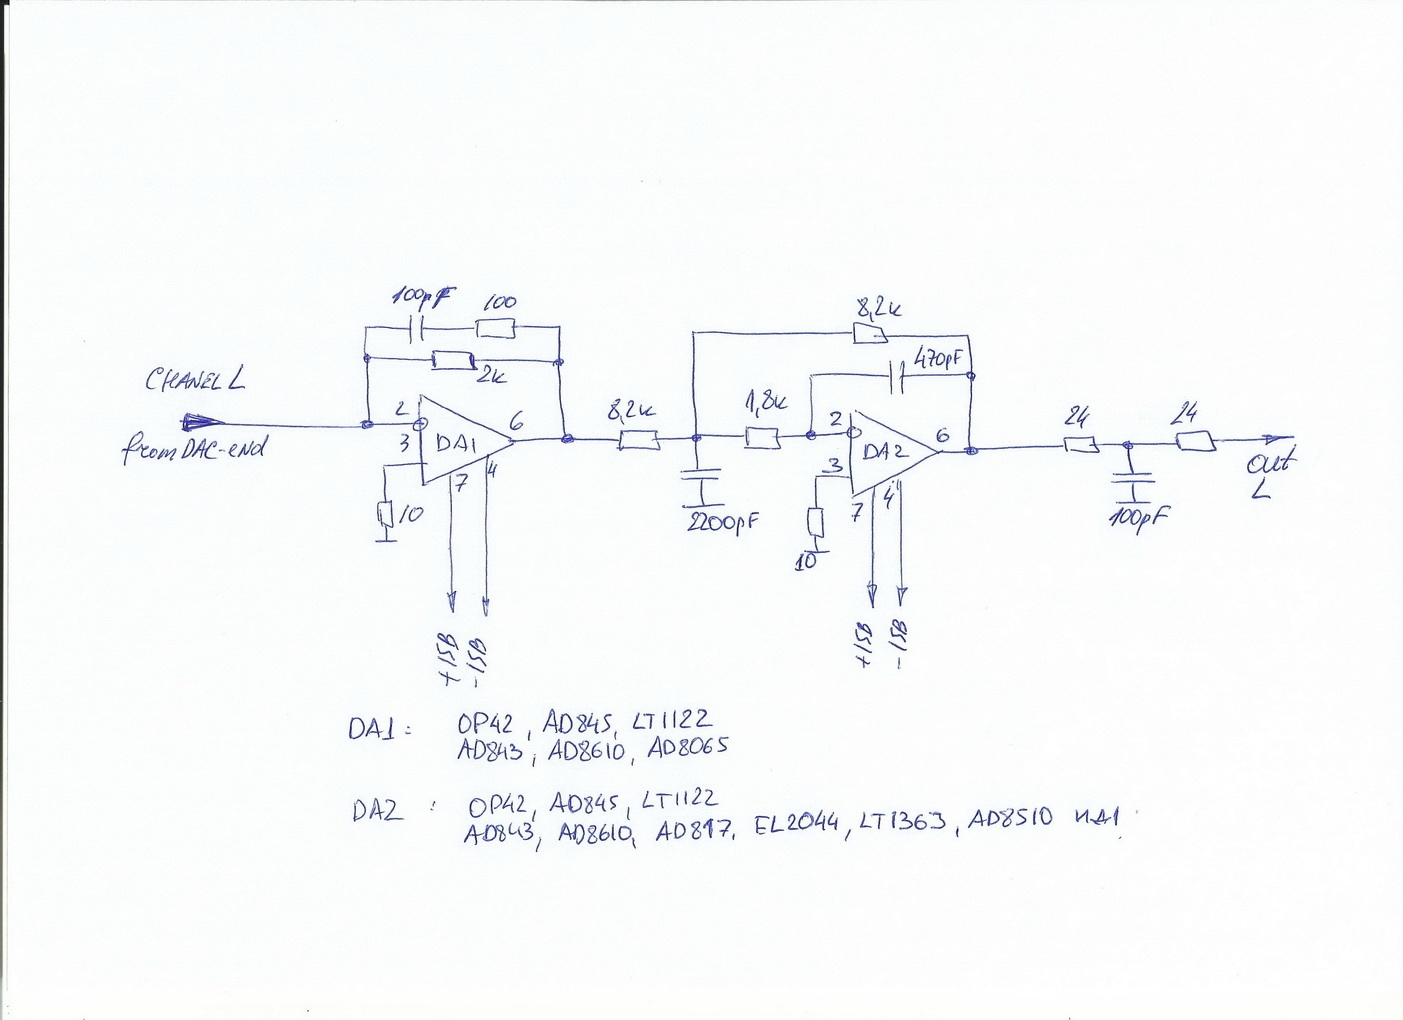 100pF 100
2k
CHANEL L
from DAC-end
2
3
DA1
6
7
4
10
+15В
-15В
8,2k
2200pF
1,8k
8,2k
470pF
2
3
DA2
6
7
4
10
+15В
-15В
24
100pF
24
out
L
DA1: OP42, AD845, LT1122
AD843, AD8610, AD8065
DA2: OP42, AD845, LT1122
AD843, AD8610, AD817, EL2044, LT1363, AD8510